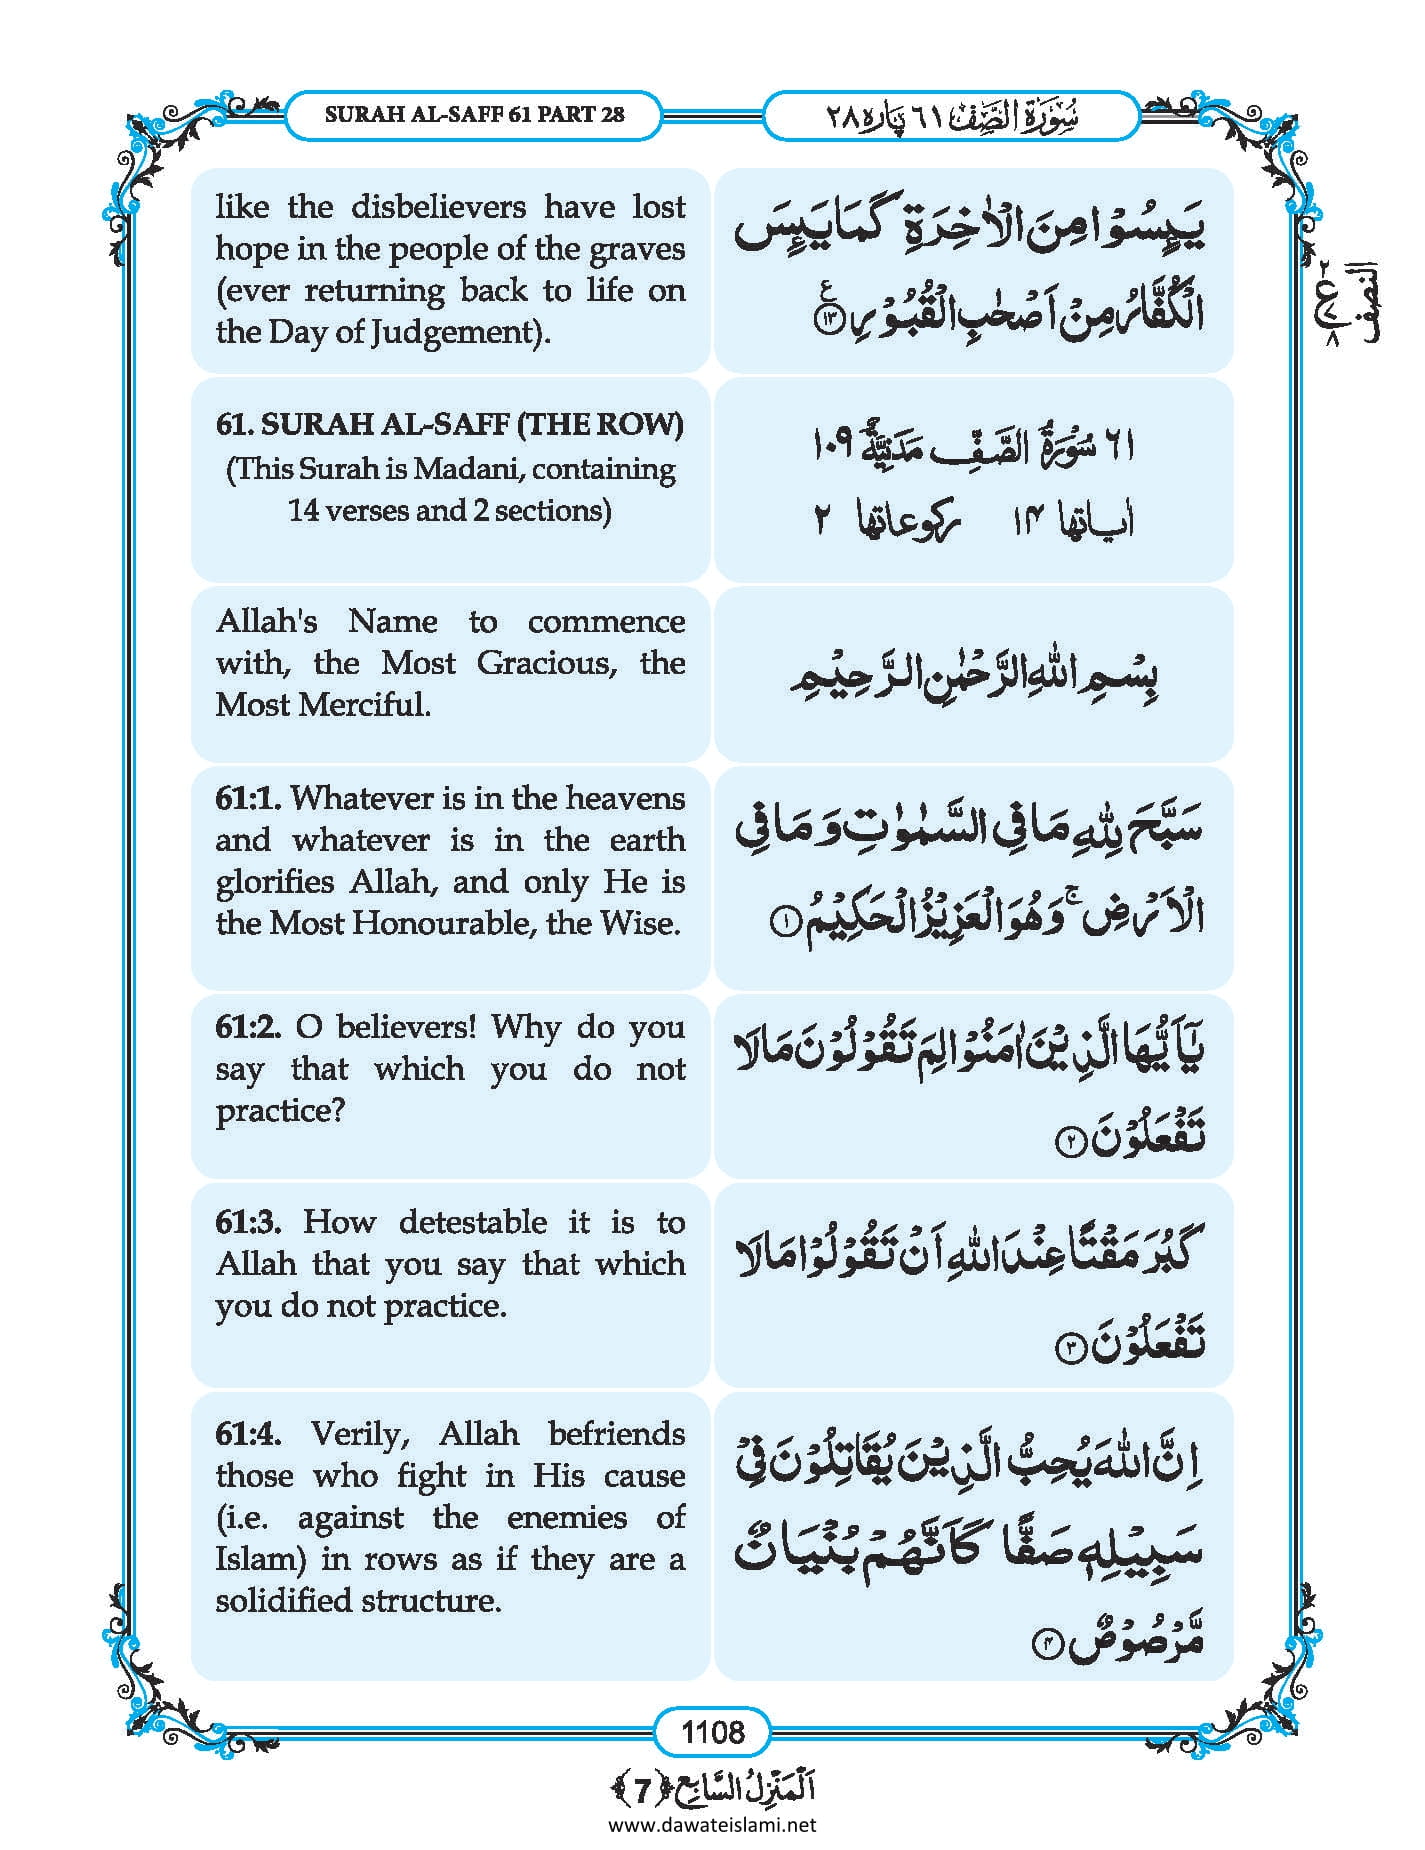 SURAH AL-SAFF 61 PART 28
سُوْرَةُ الصَّفِّ ٦١ پَارہ ٢٨
like the disbelievers have lost
hope in the people of the graves
(ever returning back to life on
the Day of Judgement).
يَىِٕسُوْا مِنَ الْاٰخِرَةِ كَمَا يَىِٕسَ
الْكُفَّارُ مِنْ اَصْحٰبِ الْقُبُوْرِ ع ١٣
النصف
٢
ع
٧
٨
61. SURAH AL-SAFF (THE ROW)
(This Surah is Madani, containing
14 verses and 2 sections)
٦١ سُوْرَةُ الصَّفِّ مَدَنِيَّةٌ ١٠٩
اٰياتها ١٤ ركوعاتها ٢
Allah's Name to commence
with, the Most Gracious, the
Most Merciful.
بِسْمِ اللّٰهِ الرَّحْمٰنِ الرَّحِيْمِ
61:1. Whatever is in the heavens
and whatever is in the earth
glorifies Allah, and only He is
the Most Honourable, the Wise.
سَبَّحَ لِلّٰهِ مَا فِي السَّمٰوٰتِ وَ مَا فِي
الْاَرْضِ ۚ وَ هُوَ الْعَزِيْزُ الْحَكِيْمُ ١
61:2. O believers! Why do you
say that which you do not
practice?
يٰۤاَيُّهَا الَّذِيْنَ اٰمَنُوْا لِمَ تَقُوْلُوْنَ مَا لَا
تَفْعَلُوْنَ ٢
61:3. How detestable it is to
Allah that you say that which
you do not practice.
كَبُرَ مَقْتًا عِنْدَ اللّٰهِ اَنْ تَقُوْلُوْا مَا لَا
تَفْعَلُوْنَ ٣
61:4. Verily, Allah befriends
those who fight in His cause
(i.e. against the enemies of
Islam) in rows as if they are a
solidified structure.
اِنَّ اللّٰهَ يُحِبُّ الَّذِيْنَ يُقَاتِلُوْنَ فِيْ
سَبِيْلِهٖ صَفًّا كَاَنَّهُمْ بُنْيَانٌ
مَّرْصُوْصٌ ٤
1108
اَلْمَنْزِلُ السَّابِع ﴿7﴾
www.dawateislami.net